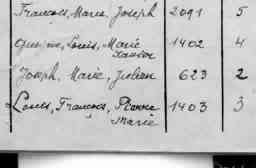 François, Marie, Joseph 2091 5
Louis, Marie 1402 4
Joseph, Marie, Julien 623 2
Louis, François, Pierre 1403 3
Marie